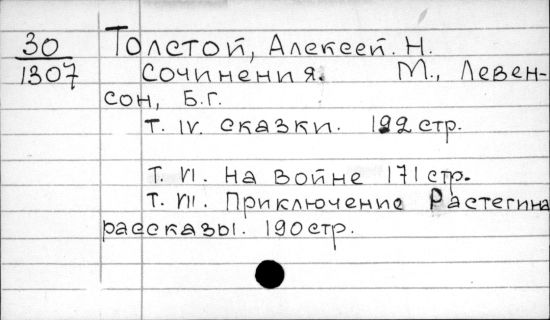 30 Толстой, Алексей. Н.
1307 Сочинения. М., Левен-
сон, Б.г.
т. IV. сказки. 192 стр.
т. VI. На войне 171 стр.
т. VII. Приключение Растегина
рассказы. 190 стр.